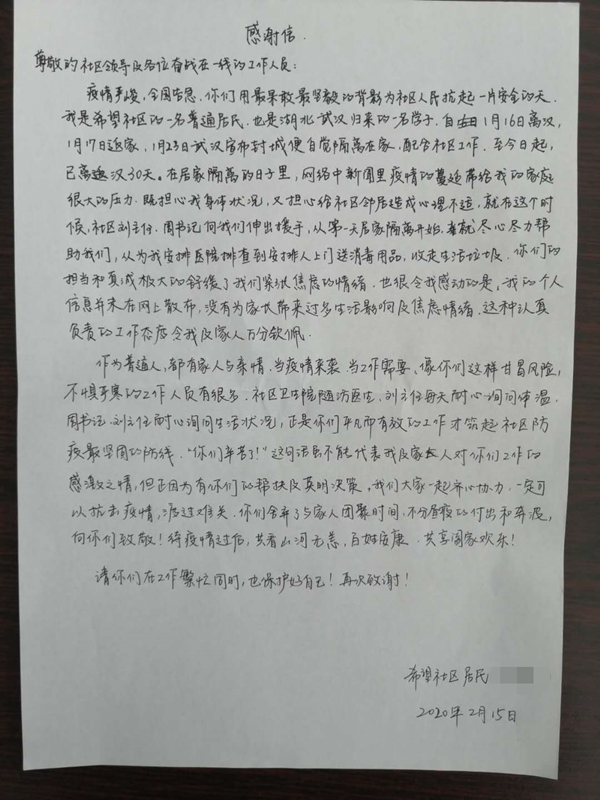 感谢信.
尊敬的社区领导及各位奋战在一线的工作人员:
疫情严峻,全国告急.你们用最果敢最坚毅的背影为社区人民抗起一片安全的天.
我是希望社区的一名普通居民.也是湖北武汉归来的一名学子.自1月16日离汉,
1月17日返家,1月23日武汉宣布封城便自觉隔离在家,配合社区工作.至今日起,
已离返汉30天.在居家隔离的日子里,网络中新闻里疫情的蔓延带给我的家庭
很大的压力.既担心我身体状况,又担心给社区邻居造成心理不适,就在这个时
候,社区刘主任.周书记向我们伸出援手,从第一天居家隔离开始,就尽心尽力帮
助我们,从为我安排医院排查到安排人上门送消毒用品,收走生活垃圾.你们的
担当和真诚极大的舒缓了我们紧张焦虑的情绪.也很令我感动的是,我的个人
信息并未在网上散布,没有为家长带来过多生活影响及焦虑情绪.这种认真
负责的工作态度令我及家人万分钦佩.
作为普通人,都有家人与亲情.当疫情来袭.当工作需要.像你们这样甘冒风险,
不惧严寒的工作人员有很多.社区卫生院随访医生.刘主任每天耐心询问体温.
周书记.刘主任耐心询问生活状况,正是你们平凡而有效的工作才筑起社区防
疫最坚固的防线."你们辛苦了!"这句话虽不能代表我及家人对你们工作的
感激之情,但正因为有你们的帮扶及英明决策,我们大家一起齐心协力.一定可
以抗击疫情,渡过难关.你们舍弃了与家人团聚时间.不分昼夜的付出和奔波,
向你们致敬!待疫情过后,共看山河无恙,百姓安康.共享阖家欢乐!
请你们在工作繁忙同时,也保护好自己!再次致谢!
希望社区居民
2020年2月15日